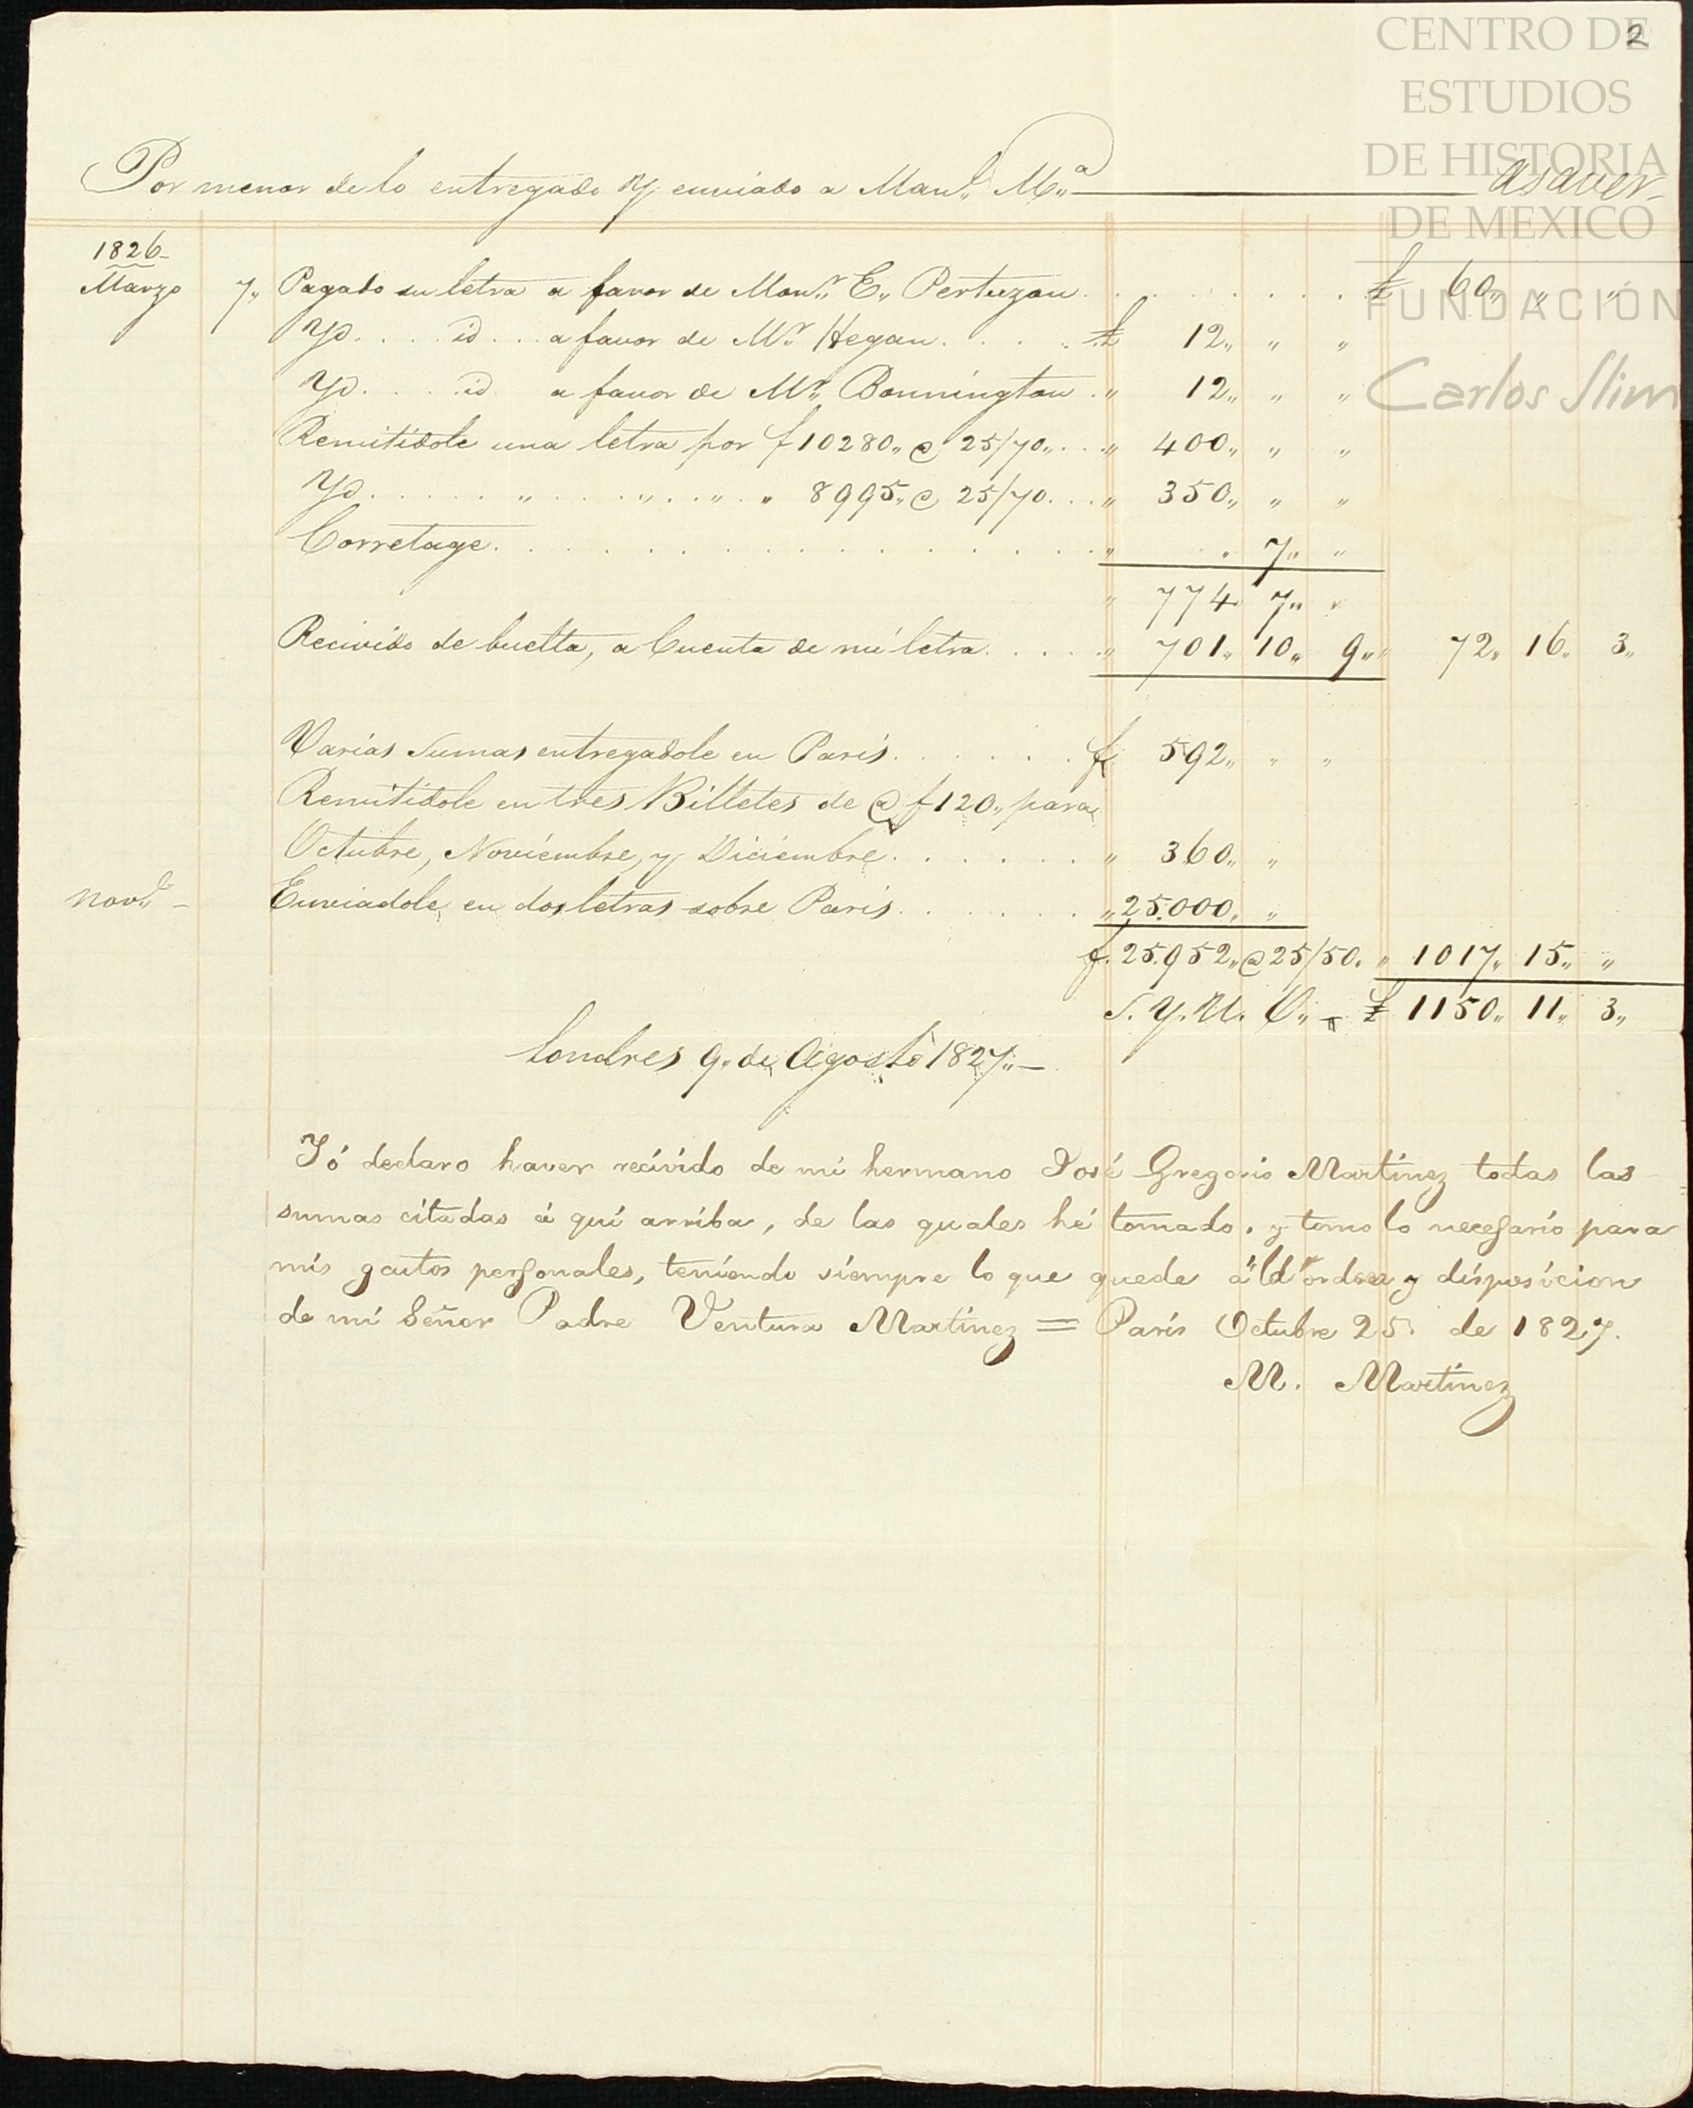 CENTRO DE
ESTUDIOS
DE HISTORIA
DE MEXICO
FUNDACIÓN
Carlos Slim
2
Por menor de lo entregado y enviado a Manl. Ma. asaver
1826
Marzo 7,, Pagado su letra a favor de Monr. E,, Pertuzon £ 60,, ,, ,,
Yd id a favor de Mr. Hegan £ 12,, ,, ,,
Yd id a favor de Mr. Bonnington ,, 12,, ,, ,,
Remitidole una letra por f 10280,, @ 25/70,, ,, 400,, ,, ,,
Yd ,, ,, ,, ,, 8995,, @ 25/70 ,, 350,, ,, ,,
Corretage ,, ,, 7,, ,,
,, 774 7,, ,,
Recivido de buelta, a Cuenta de mi letra ,, 701,, 10,, 9,, ,, 72,, 16,, 3,,
Varias Sumas entregadole en Paris f 592,, ,, ,,
Remitidole en tres Billetes de @ f 120,, para
Octubre, Noviembre, y Diciembre ,, 360,, ,,
Nove. Enviadole en dos letras sobre Paris ,, 25.000,, ,,
f. 25.952,, @ 25/50. ,, 1017,, 15,, ,,
S. Y. U. O,, £ 1150,, 11,, 3,,
Londres 9. de Agosto 1827,,
Yó declaro haver recivido de mi hermano José Gregorio Martinez todas las
sumas citadas á qui arriba, de las quales hé tomado, y tomo lo necesario para
mis gastos personales, teniendo siempre lo que quede á ld orden y disposicion
de mi Señor Padre Ventura Martinez = Paris Octubre 25. de 1827.
M. Martinez